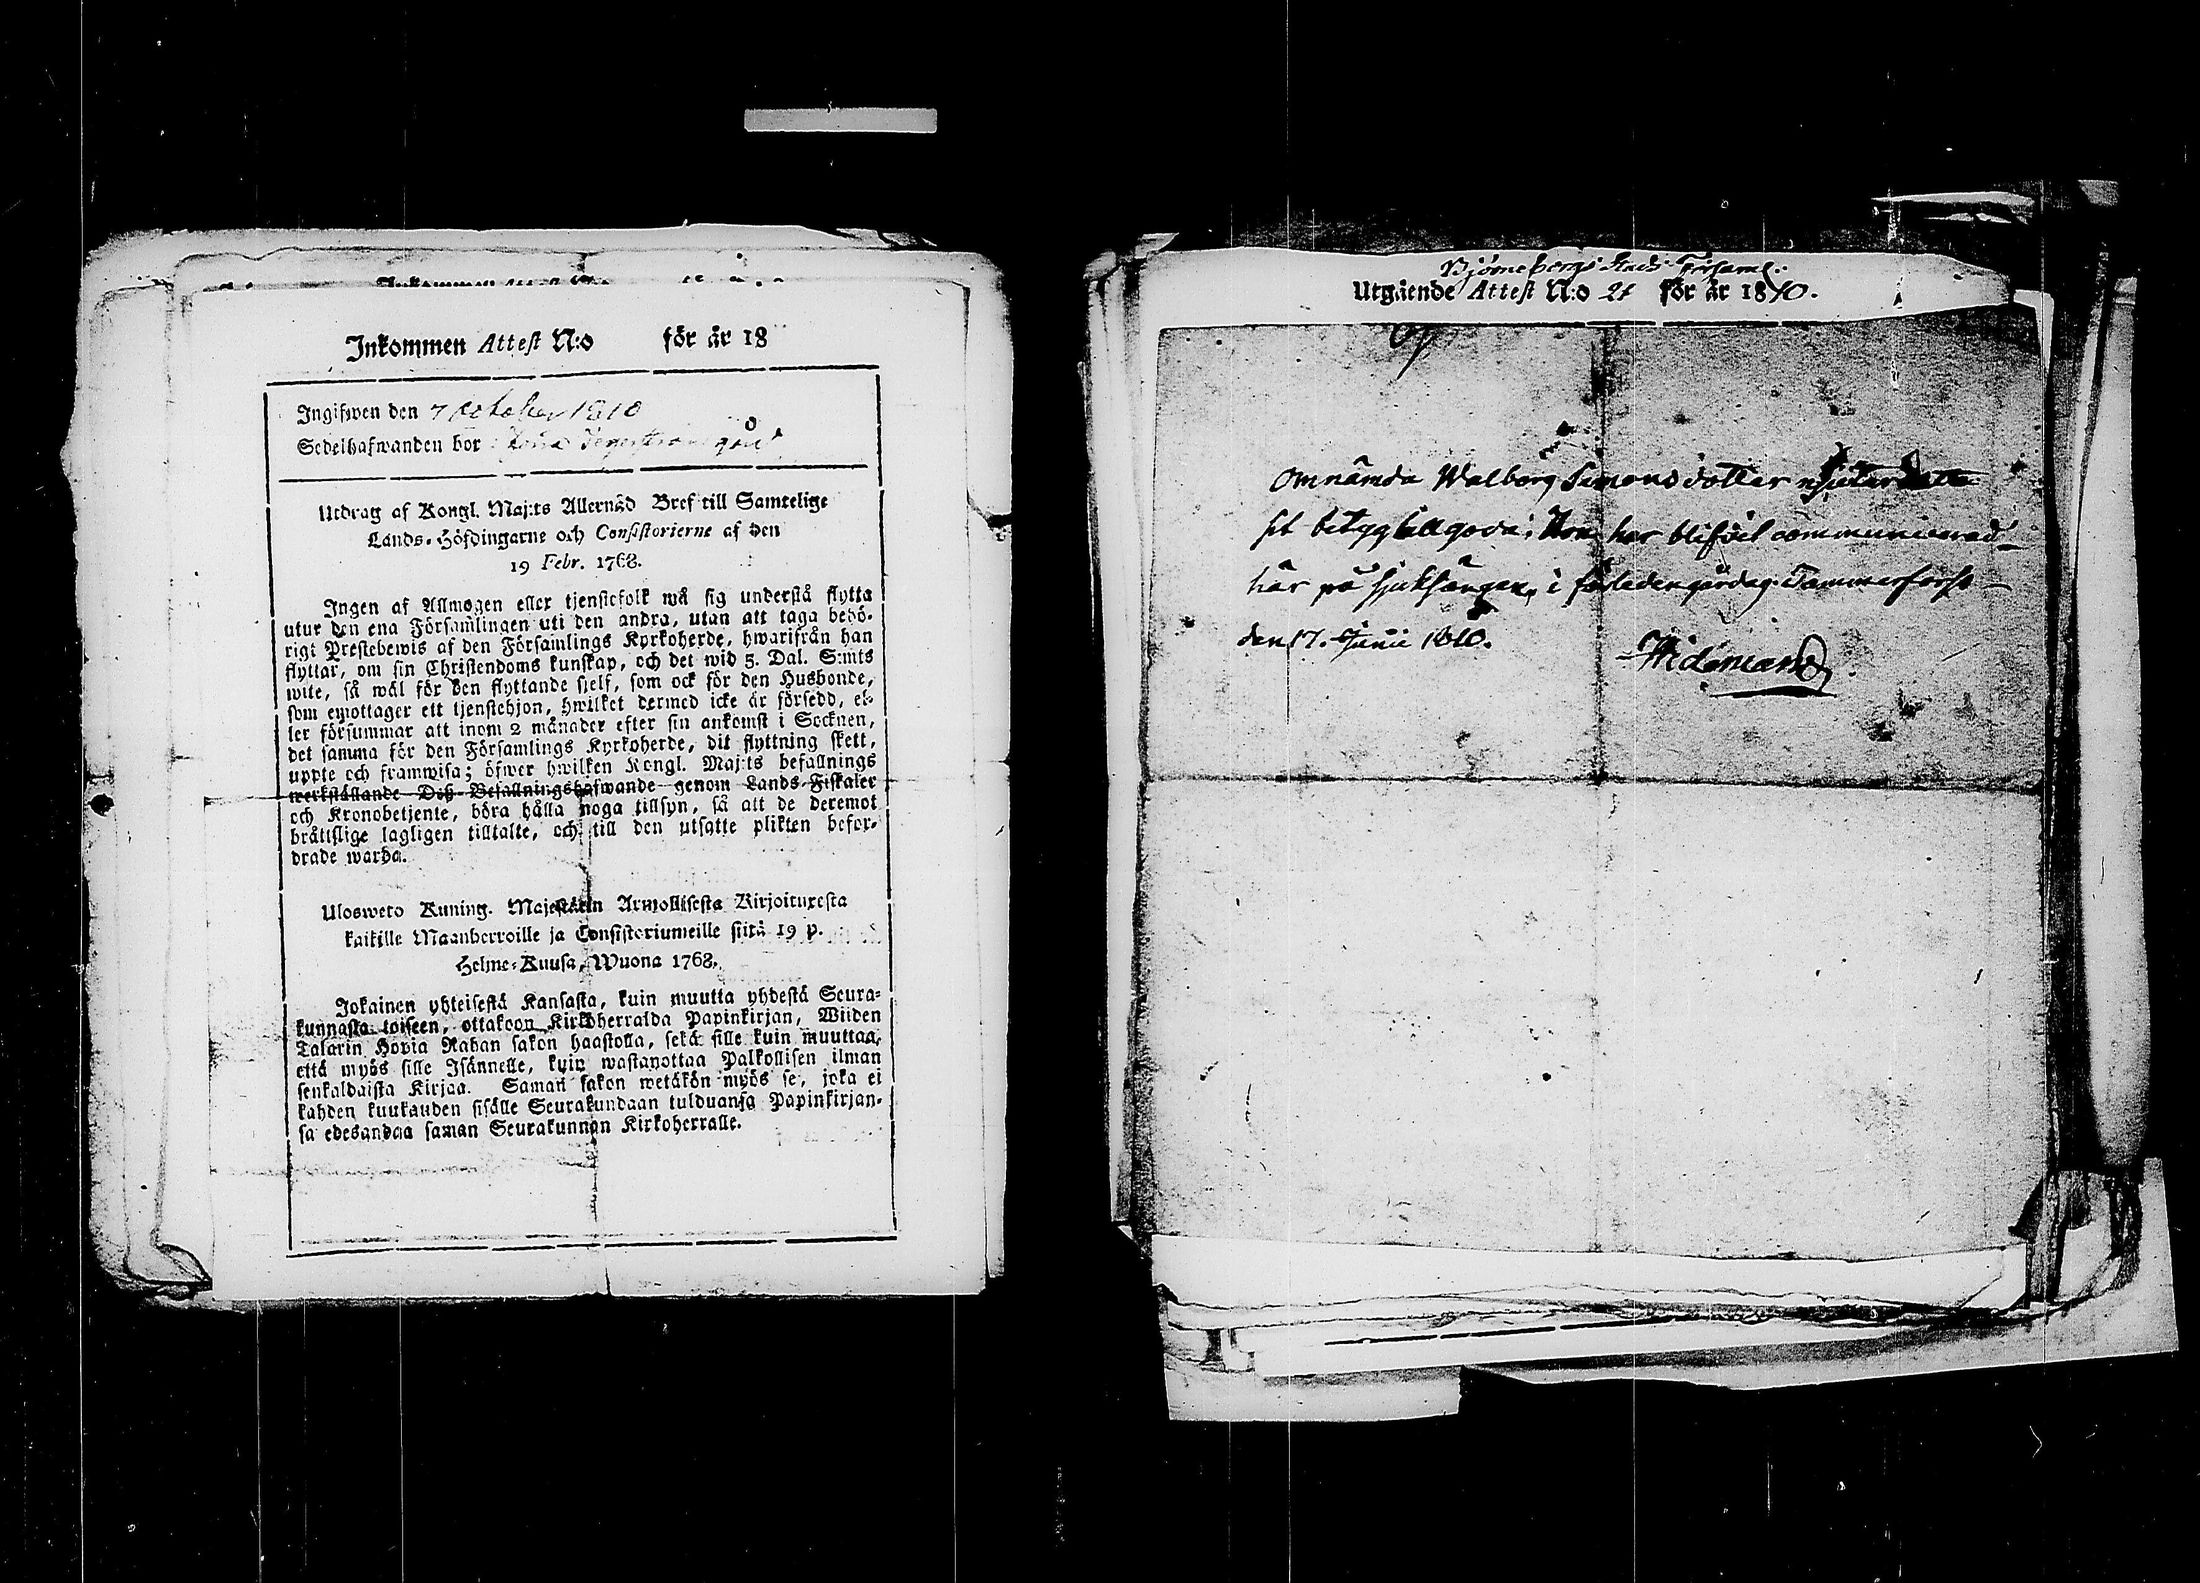 Inkommen Attest N:o för år 18
Ingifwen den 7 October 1810
Sedelhafwanden bor
Utdrag af Kongl. Maj:ts Allernåd Bref till Samtelige
Lands-Höfdingarne och Consistorierne af den
19 Febr. 1768.
Ingen af Allmogen eller tjenstefolk må sig understå flytta
utur den ena Församlingen uti den andra, utan att taga behö-
rigt Prestebewis af den Församlings Kyrkoherde, hwarifrån han
flyttar, om sin Christendoms kunskap, och det wid 5. Dal. S:mts
wite, så wäl för den flyttande sjelf, som ock för den Husbonde,
som emottager ett tjenstehjon, hwilket dermed icke är försedd, el-
ler försummar att inom 2 månader efter sin ankomst i Socknen,
det samma för den Församlings Kyrkoherde, dit flyttning skett,
uppte och framwisa; öfwer hwilken Kongl. Maj:ts befallnings
werkställande Deß Befallningshafwande genom Lands-Fiskaler
och Kronobetjente, böra hålla noga tillsyn, så att de deremot
bråtislige lagligen tilltalte, och till den utsatte plikten befor-
drade warda.
Ulosweto Kuning. Majestätin Armollisesta Kirjoituxesta
kaikille Maanherroille ja Consistoriumeille siitä 19 p.
Helme-Kuusa, Wuona 1768.
Jokainen yhteisestä Kansasta, kuin muutta yhdestä Seura-
kunnasta toiseen, ottakoon Kirkkoherralda Papinkirjan, Wiiden
Talarin Hopia Rahan sakon haastolla, sekä sille kuin muuttaa,
että myös sille Isännelle, kuin wastanottaa Palkollisen ilman
senkaldaista Kirjaa. Saman sakon wetäkön myös se, joka ei
kahden kuukauden sisälle Seurakundaan tulduansa Papinkirjan-
sa edesandaa saman Seurakunnan Kirkoherralle.
Björneborgs Stads Församl.
Utgående Attest N:o 21 för år 1810.
Omnämda Walborg Simonsdotter
sit betyg tillgodo; Hon har blifvit communicerad
här på sjuksängen, i förleden gårdag. Tammerfors
den 17. Junii 1810.